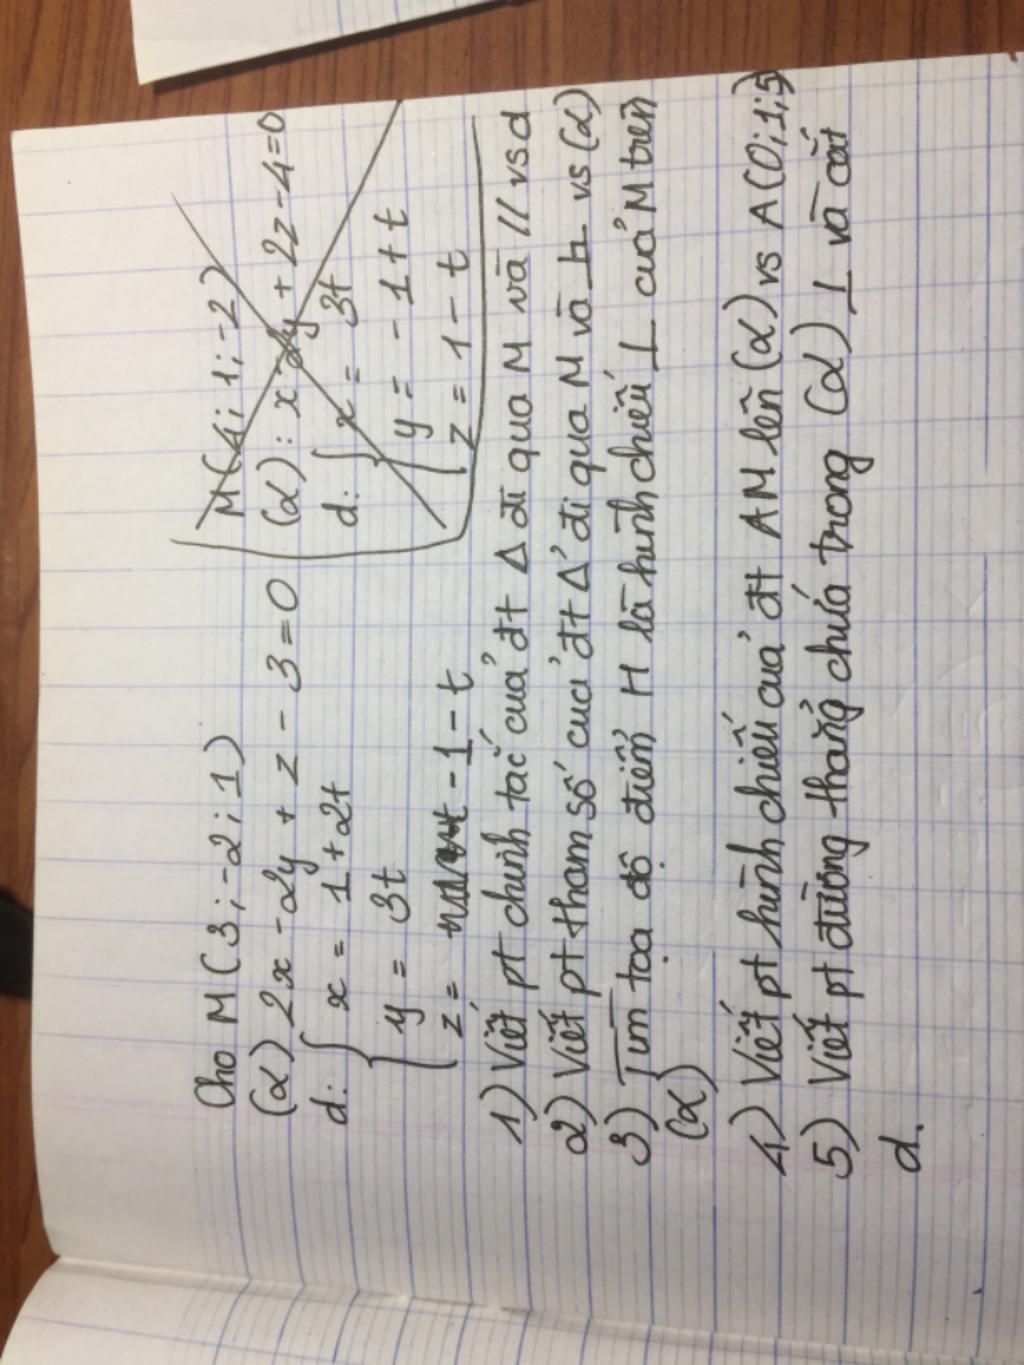 Cho M(3;-2;1)
(α) 2x-2y+z-3=0
d: { x=1+2t
y=3t
z= -1-t
M(4;1;-2)
(α): x-2y+2z-4=0
d: { x=3t
y=-1+t
z=1-t
1) Viết pt chính tắc của đt Δ đi qua M và // vs d
2) Viết pt tham số của đt Δ' đi qua M và ⊥ vs (α)
3) Tìm tọa độ điểm H là hình chiếu ⊥ của M trên
(α)
4) Viết pt hình chiếu của đt AM lên (α) vs A(0;1;5)
5) Viết pt đường thẳng chứa trong (α) ⊥ và cắt
d.